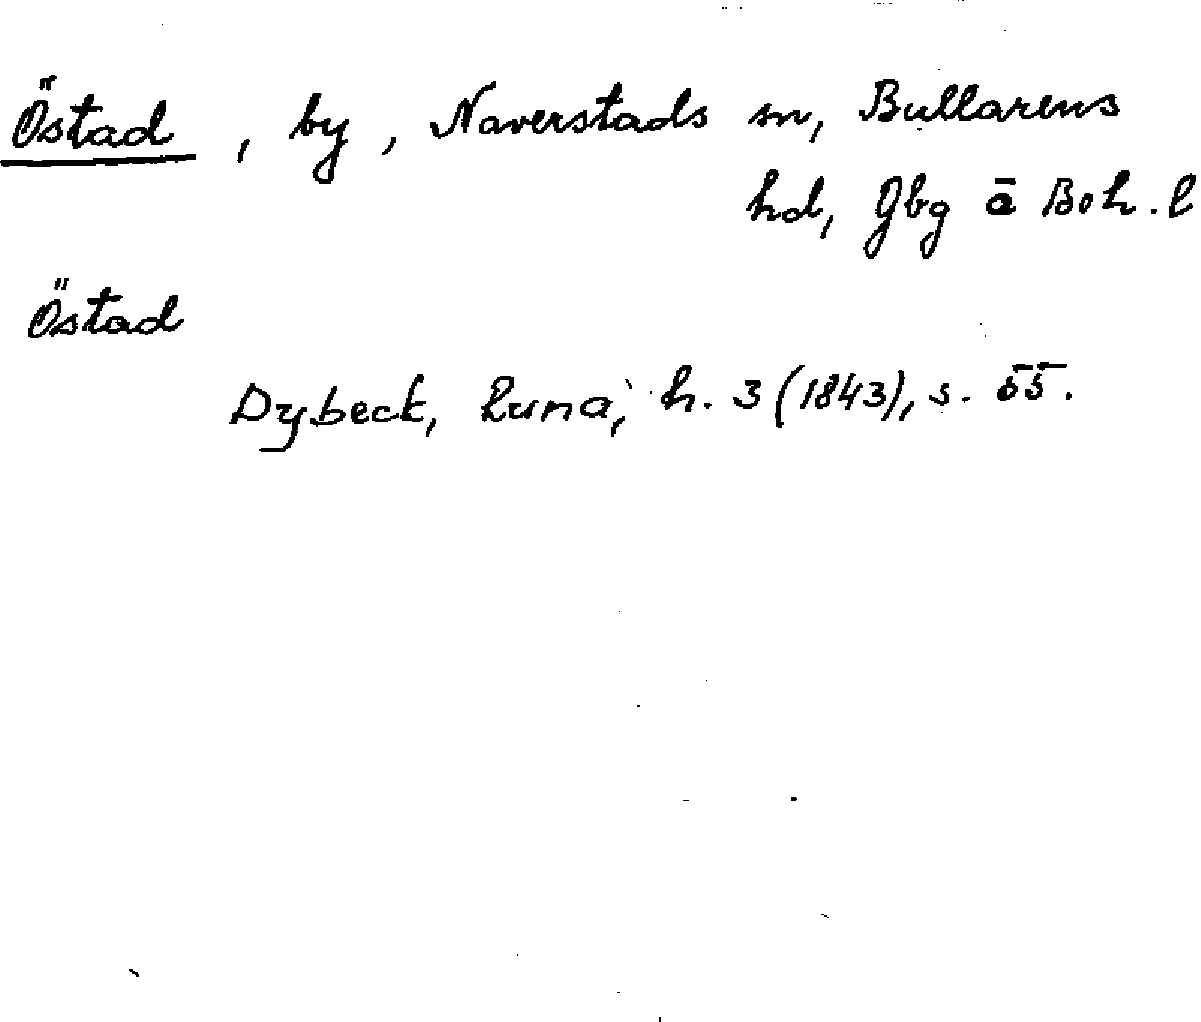 Östad, by, Naverstads sn, Bullarens
hd, Gbg o Boh. l
Östad
Dybeck, Runa, h. 3 (1843), s. 55.